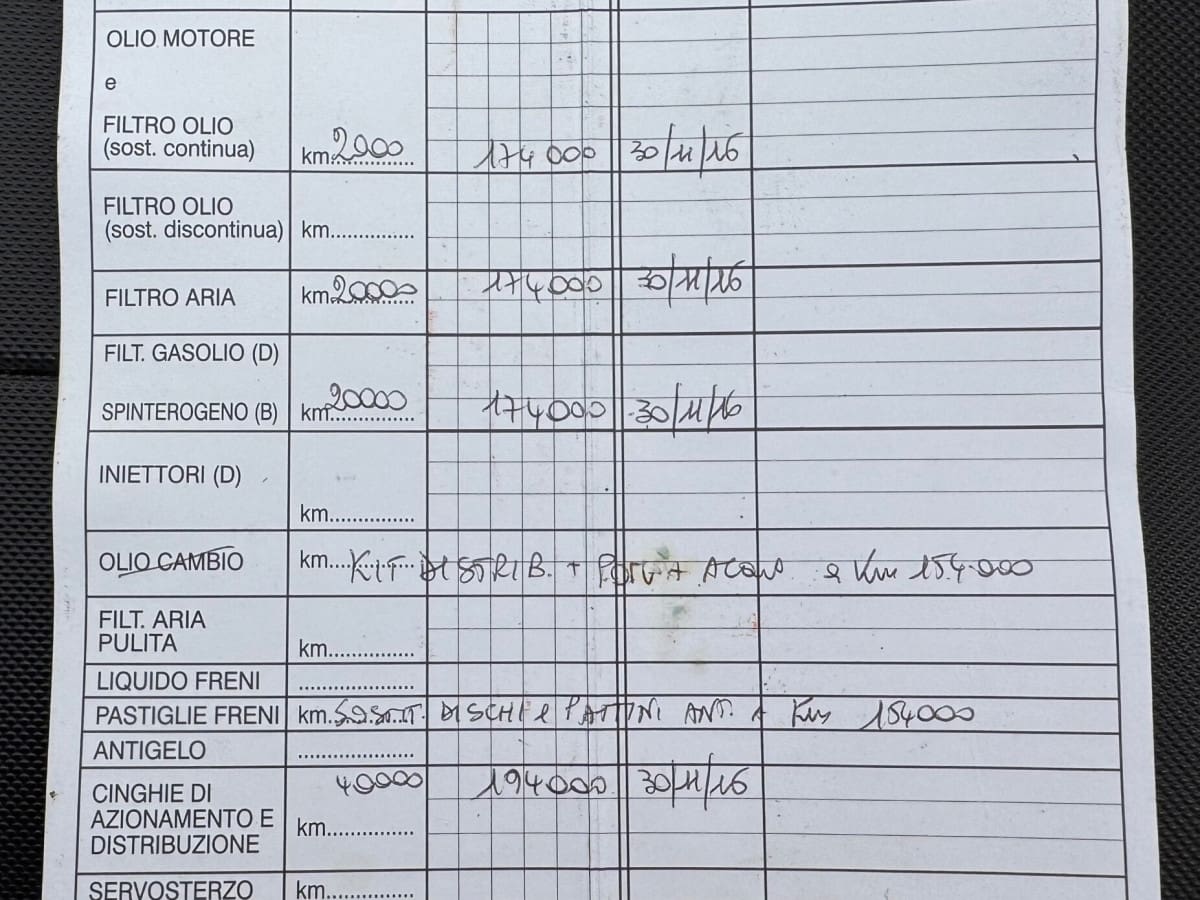 OLIO MOTORE
e
FILTRO OLIO
(sost. continua) km.2000 174000 30/11/16
FILTRO OLIO
(sost. discontinua) km...............
FILTRO ARIA km.20000 174000 30/11/16
FILT. GASOLIO (D)
SPINTEROGENO (B) km.20000 174000 30/11/16
INIETTORI (D)
km...............
OLIO CAMBIO km. KIT DISTRIB. + POMPA ACQUA a Km 154.000
FILT. ARIA
PULITA km...............
LIQUIDO FRENI ....................
PASTIGLIE FRENI km. SOSTIT. DISCHI e PATTINI ANT. A Km 154000
ANTIGELO ....................
40000 194000 30/11/16
CINGHIE DI
AZIONAMENTO E km...............
DISTRIBUZIONE
SERVOSTERZO km...............